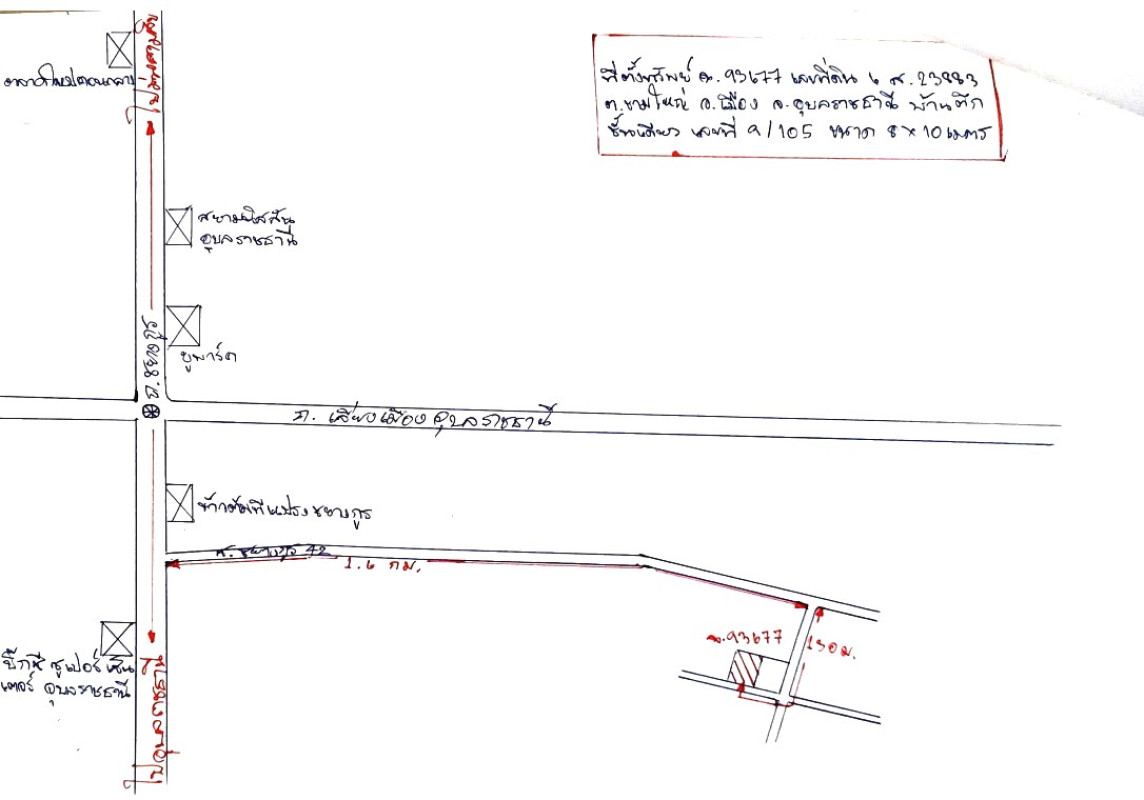 ไปม่วงสามสิบ
ที่ตั้งทรัพย์ ฉ.93677 เลขที่ดิน ๖ ส.23883
ต.ขามใหญ่ อ.เมือง จ.อุบลราชธานี บ้านตึก
ชั้นเดียว เลขที่ ๑/105 ขนาด 8×10 เมตร
สยามนิสสัน
อุบลราชธานี
ถ.ชยางกูร
ยูพาร์ค
ถ. เลี่ยงเมืองอุบลราชธานี
ข้าวต้มทีแปรงชยางกูร
ซ. ชยางกูร 42
1.6 กม.
ฉ.93677
130ม.
บิ๊กซี ซูเปอร์เซ็น
เตอร์ อุบลราชธานี
ไปอุบลราชธานี